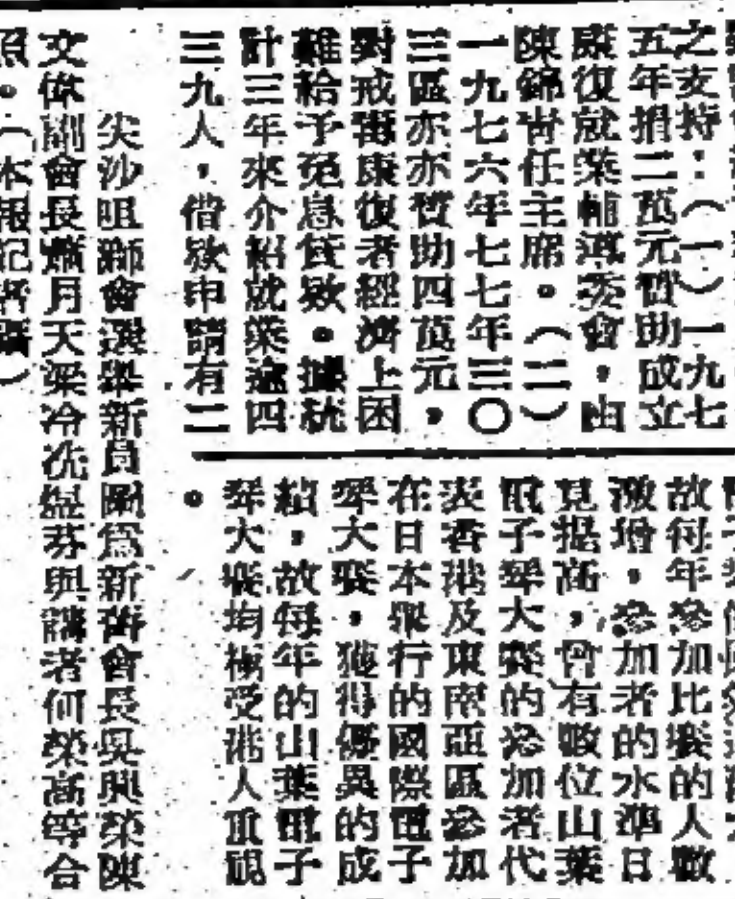 之支持：（一）一九七
五年捐二萬元贊助成立
康復就業輔導委會，由
陳錦釗任主席。（二）
一九七六年七七年三〇
三區亦亦贊助四萬元，
對戒毒康復者經濟上困
難給予免息貸欵。據統
計三年來介紹就業逾四
三九人，借欵申請有二
故每年參加比賽的人數
激增，參加者的水準日
見提高，曾有數位山葉
電子琴大賽的參加者代
表香港及東南亞區參加
在日本舉行的國際電子
琴大賽，獲得優異的成
績，故每年的山葉電子
琴大賽均極受港人重視
。
尖沙咀獅會選舉新員圖爲新舊會長吳興榮陳
文偉副會長 月天梁冷冼焜芬與講者何榮高等合
照。（本報記者攝）